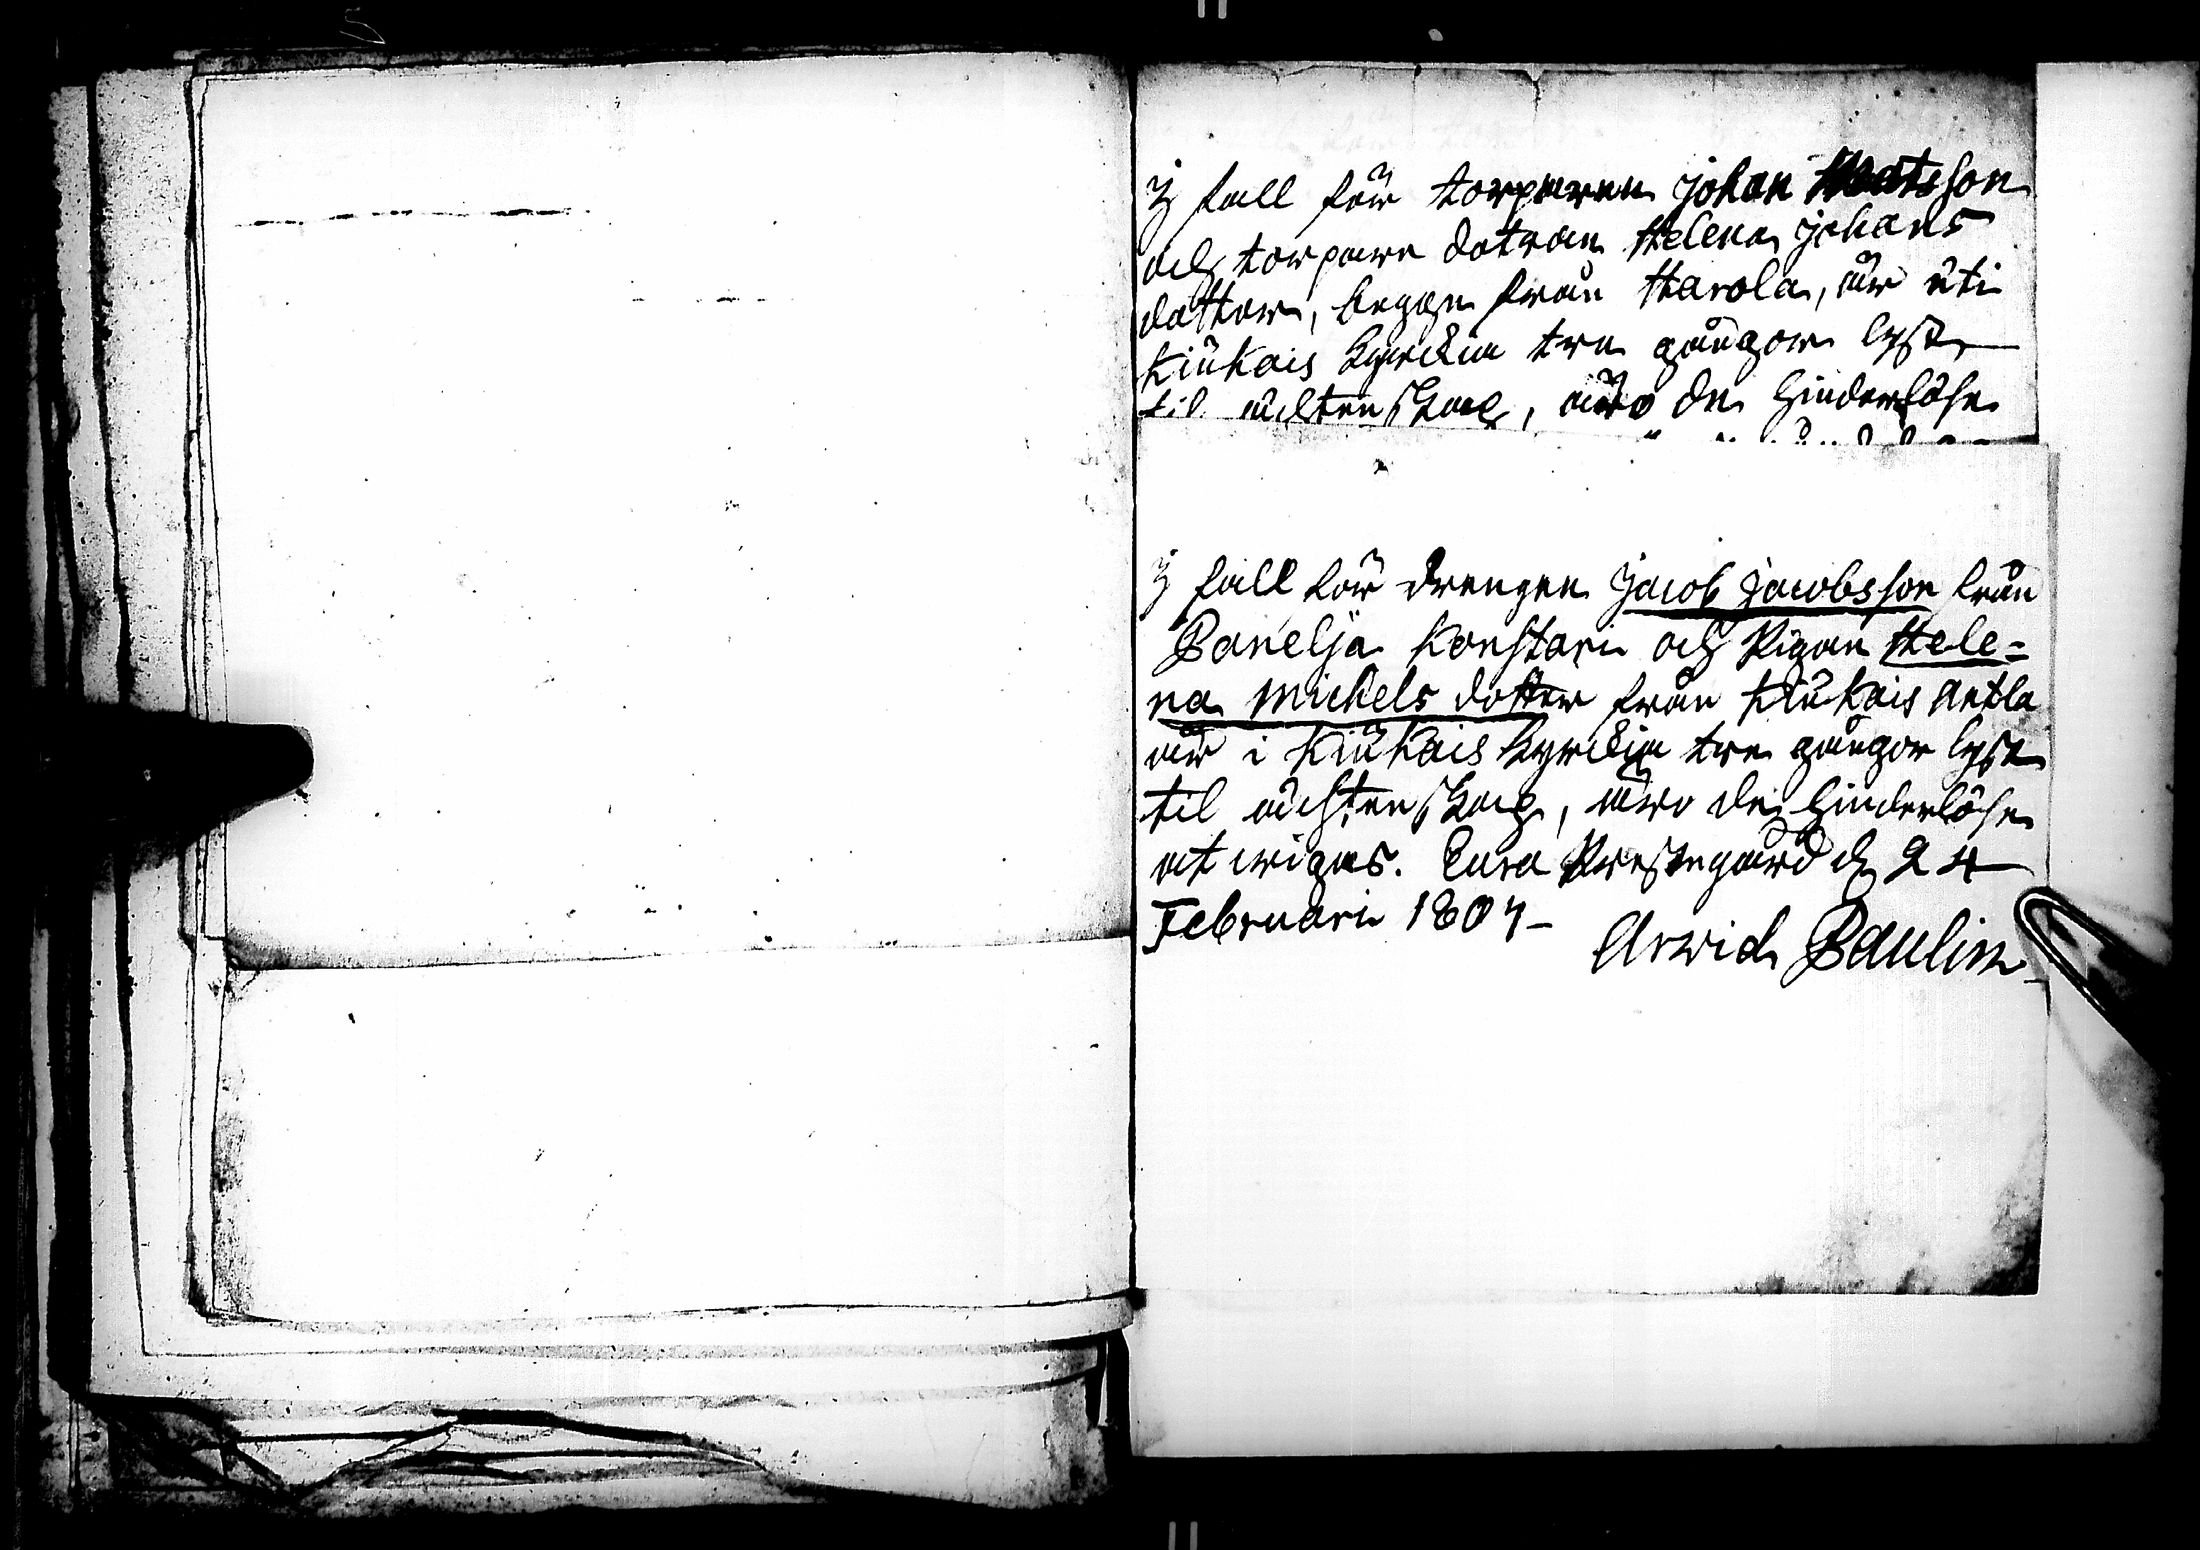 J fall för torparen Johan Matsson
och torpare dotran Helena Johans
dotter, begge från Harola, är uti
Kiukais kyrckia tre gångor lyst
til ächtenskap, äro de hinderlöse
J fall för drengen Jacob Jacobsson från
Panelja Konstari och Pigan Hele=
na Michels dotter från Kiukais Antla
är i Kiukais kyrckia tre gångor lyst
til ächtenskap, äro de hinderlöse
at wigas. Eura Prestegård d. 24
Februari 1807-
Arwid Paulin